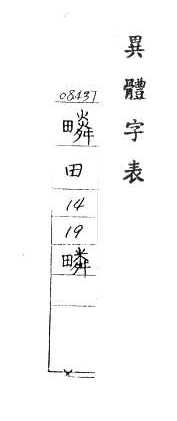 異體字表
08437
田
14
19
疄